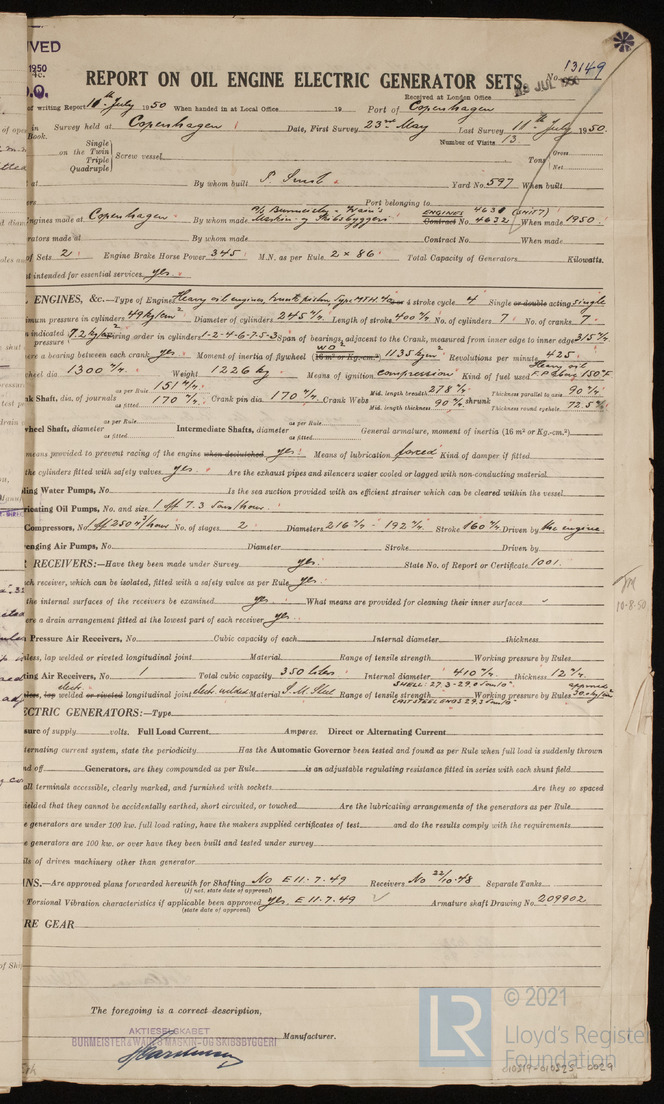 VED
1950
13149
REPORT ON OIL ENGINE ELECTRIC GENERATOR SETS. No.
Received at London Office
JUL 1950
of writing Report 11th July 1950 When handed in at Local Office 19 Port of Copenhagen
in Survey held at Copenhagen Date, First Survey 23rd May Last Survey 11th July 1950.
Book.
Number of Visits 13
Single
on the Twin
Triple
Quadruple
Screw vessel
Tons
Gross
Net
at By whom built Yard No. 597 When built
Port belonging to
Engines made at Copenhagen By whom made A/S Burmeister & Wain's Maskin- og Skibsbyggeri ENGINES Contract No. 4631 4632 When made 1950
rators made at By whom made Contract No. When made
of Sets 2 Engine Brake Horse Power 345 M.N. as per Rule 2 x 86 Total Capacity of Generators Kilowatts.
t intended for essential services yes
ENGINES, &c.—Type of Engines Heavy oil engines, trunk piston, 4 stroke cycle 4 Single or double acting single
imum pressure in cylinders 49 kg/cm² Diameter of cylinders 245 m/m Length of stroke 400 m/m No. of cylinders 7 No. of cranks 7
n indicated pressure 7.2 kg/cm² Firing order in cylinders 1-2-4-6-7-5-3 Span of bearings, adjacent to the Crank, measured from inner edge to inner edge 315 m/m
ere a bearing between each crank yes Moment of inertia of flywheel (16 m² or Kg.-cm.²) 1135 kgm² Revolutions per minute 425
wheel dia. 1300 m/m Weight 1226 kg Means of ignition compression Kind of fuel used Heavy oil F.P. above 150°F
nk Shaft, dia. of journals as per Rule 151 m/m as fitted 170 m/m Crank pin dia. 170 m/m Crank Webs Mid. length breadth 278 m/m Mid. length thickness 90 m/m shrunk Thickness parallel to axis 90 m/m Thickness round eyehole 72.5 m/m
wheel Shaft, diameter as per Rule as fitted Intermediate Shafts, diameter as per Rule as fitted General armature, moment of inertia (16 m² or Kg.-cm.²)
means provided to prevent racing of the engine when declutched yes Means of lubrication forced Kind of damper if fitted
the cylinders fitted with safety valves yes Are the exhaust pipes and silencers water cooled or lagged with non-conducting material
ling Water Pumps, No. Is the sea suction provided with an efficient strainer which can be cleared within the vessel
ricating Oil Pumps, No. and size 1 off 7.3 tons/hour
Compressors, No. 1 off 250 m³/hour No. of stages 2 Diameters 216 m/m - 192 m/m Stroke 160 m/m Driven by the engine
enging Air Pumps, No. Diameter Stroke Driven by
RECEIVERS:—Have they been made under Survey yes State No. of Report or Certificate 1001
ch receiver, which can be isolated, fitted with a safety valve as per Rule yes
the internal surfaces of the receivers be examined yes What means are provided for cleaning their inner surfaces
10.8.50
ere a drain arrangement fitted at the lowest part of each receiver yes
Pressure Air Receivers, No. Cubic capacity of each Internal diameter thickness
less, lap welded or riveted longitudinal joint Material Range of tensile strength Working pressure by Rules
ing Air Receivers, No. 1 Total cubic capacity 350 litres Internal diameter 410 m/m thickness 12 m/m
less, lap welded or riveted longitudinal joint elect. welded Material S.M. Steel Range of tensile strength SHELL: 27.3-29.0 tons/□" CAST STEEL ENDS 29.2 tons/□" Working pressure by Rules approved 30.0 kg/cm²
ECTRIC GENERATORS:—Type
sure of supply volts. Full Load Current Amperes. Direct or Alternating Current
ternating current system, state the periodicity Has the Automatic Governor been tested and found as per Rule when full load is suddenly thrown
nd off Generators, are they compounded as per Rule is an adjustable regulating resistance fitted in series with each shunt field
all terminals accessible, clearly marked, and furnished with sockets Are they so spaced
ielded that they cannot be accidentally earthed, short circuited, or touched Are the lubricating arrangements of the generators as per Rule
e generators are under 100 kw. full load rating, have the makers supplied certificates of test and do the results comply with the requirements
e generators are 100 kw. or over have they been built and tested under survey
ils of driven machinery other than generator
NS.—Are approved plans forwarded herewith for Shafting No E 11.7.49 Receivers No 22/10-48 Separate Tanks
(If not, state date of approval)
Torsional Vibration characteristics if applicable been approved yes. E 11.7.49 Armature shaft Drawing No. 209902
(state date of approval)
RE GEAR
The foregoing is a correct description,
AKTIESELSKABET
BURMEISTER & WAIN'S MASKIN- OG SKIBSBYGGERI Manufacturer.
LR
© 2021
Lloyd's Register
Foundation
010519-010525-0029